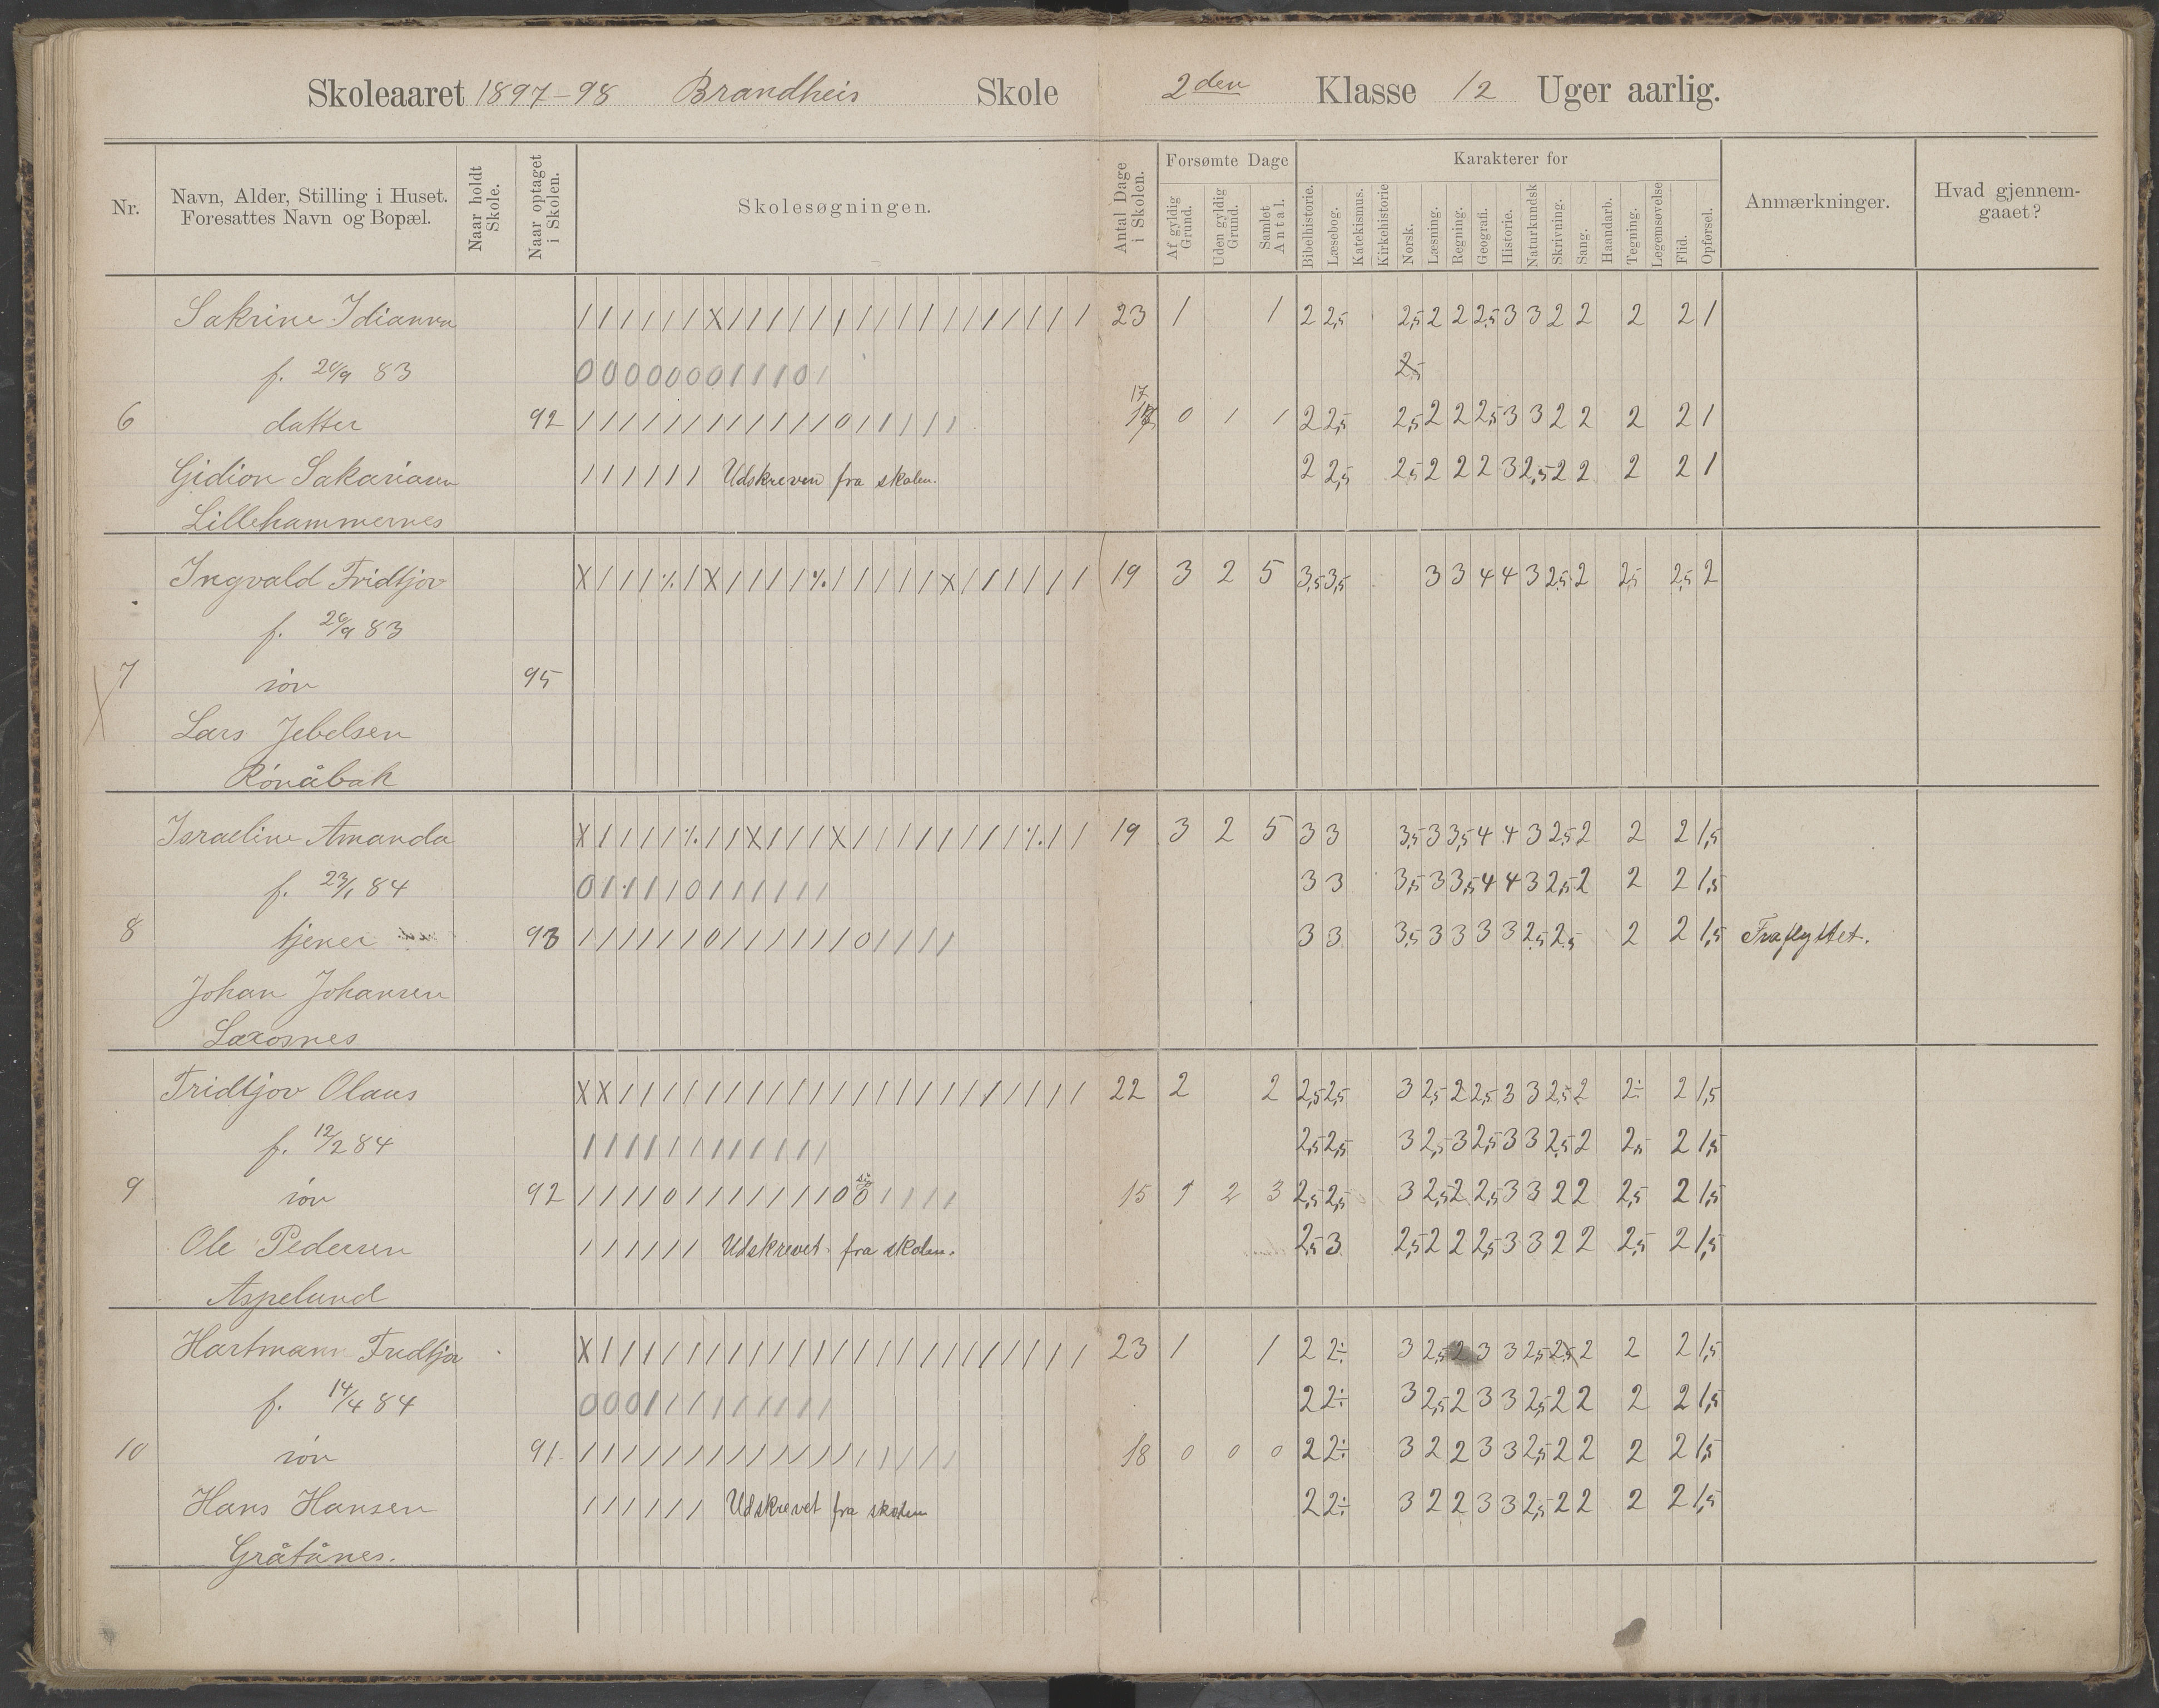 Skoleaaret 1897-98 Brandheis Skole 2den Klasse 12 Uger aarlig.
Nr.
Navn, Alder, Stilling i Huset.
Foresattes Navn og Bopæl.
Naar holdt Skole.
Naar optaget i Skolen.
Skolesøgningen.
Antal Dage i Skolen.
Forsømte Dage
Af gyldig Grund.
Uden gyldig Grund.
Samlet Antal.
Karakterer for
Bibelhistorie.
Læsebog.
Katekismus.
Kirkehistorie
Norsk.
Læsning.
Regning.
Geografi.
Historie.
Naturkundsk
Skrivning.
Sang.
Haandarb.
Tegning.
Legemsøvelse
Flid.
Opførsel.
Anmærkninger.
Hvad gjennemgaaet?
Sakrine Idianna 23 1 1 2 2,5 2,5 2 2 2,5 3 3 2 2 2 2 1
f. 83
17
6 datter 92 0 1 1 2 2,5 2,5 2 2 2,5 3 3 2 2 2 2 1
Gidion Sakariasen Udskreven fra skolen. 2 2,5 2,5 2 2 2 3 2,5 2 2 2 2 1
Lillehammernes
Ingvald Fridtjov 19 3 2 5 3,5 3,5 3 3 4 4 3 2,5 2 2,5 2,5 2
f. 26/9 83
7 søn 95
Lars Jebelsen
Rónåbak
Israeline Amanda 19 3 2 5 3 3 3,5 3 3,5 4 4 3 2,5 2 2 2 1,5
f. 23/1 84 3 3 3,5 3 3,5 4 4 3 2,5 2 2 2 1,5
8 tjener 93 3 3 3,5 3 3 3 3 2,5 2,5 2 2 1,5 Fraflyttet.
Johan Johansen
Laxosnes
Fridtjov Olaus 22 2 2 2,5 2,5 3 2,5 2 2,5 3 3 2,5 2 2÷ 2 1,5
f. 12/2 84 2,5 2,5 3 2,5 3 2,5 3 3 2,5 2 2,5 2 1,5
9 søn 92 15 1 2 3 2,5 2,5 3 2,5 2 2,5 3 3 2 2 2,5 2 1,5
Ole Pedersen Udskrevet fra skolen. 2,5 3 2,5 2 2 2,5 3 3 2 2 2,5 2 1,5
Aspelund
Hartmann Fridtjov 23 1 1 2 2÷ 3 2,5 2 3 3 2,5 2,5 2 2 2 1,5
f. 14/4 84 2 2÷ 3 2,5 2 3 3 2,5 2 2 2 2 1,5
10 søn 91 18 0 0 0 2 2÷ 3 2 2 3 3 2,5 2 2 2 2 1,5
Hans Hansen Udskrevet fra skolen 2 2÷ 3 2 2 3 3 2,5 2 2 2 2 1,5
Gråtånes.